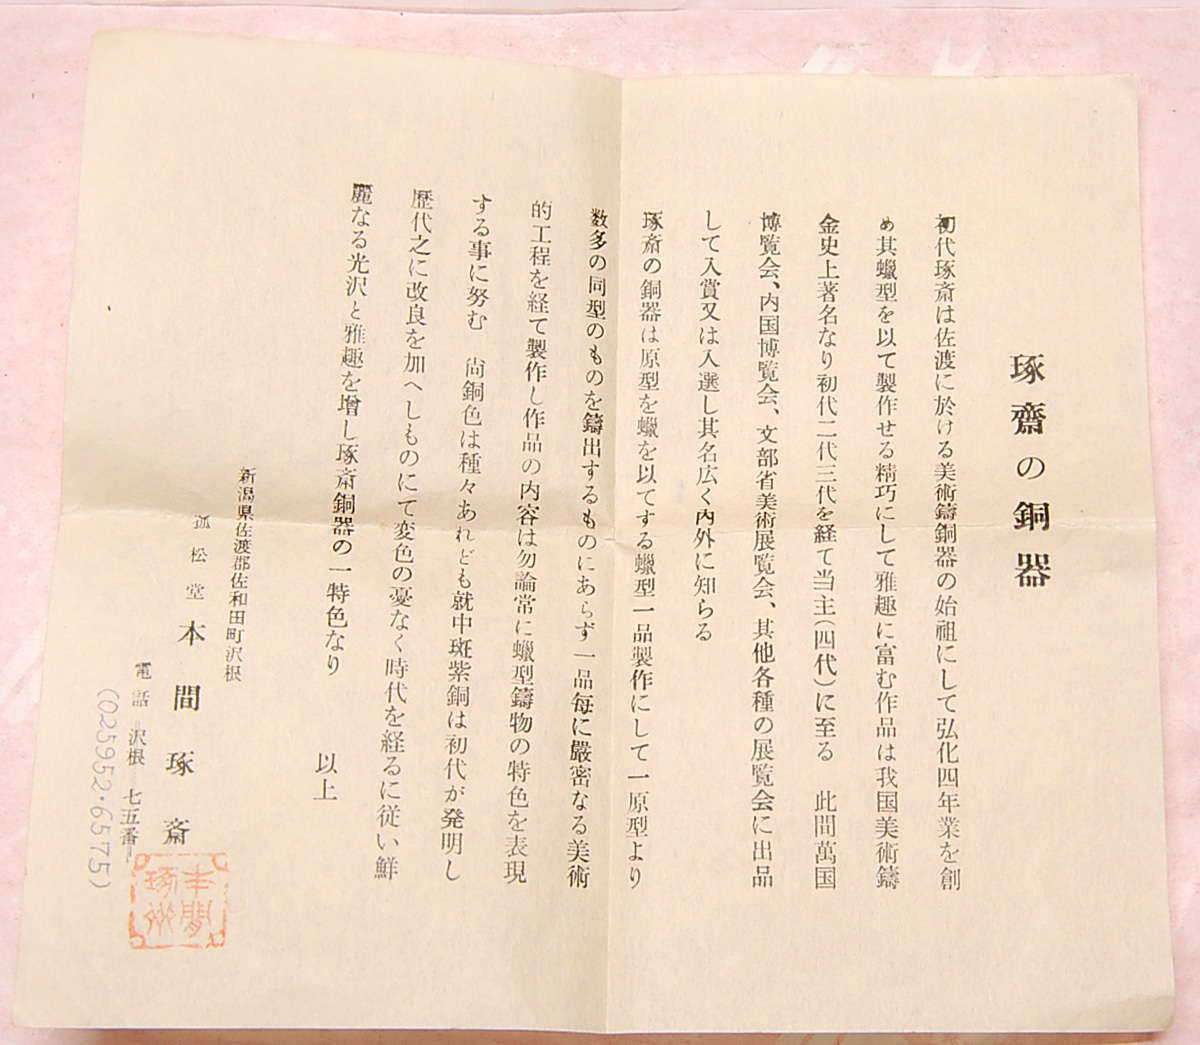 琢齋の銅器
初代琢斎は佐渡に於ける美術鑄銅器の始祖にして弘化四年業を創
め其蠟型を以て製作せる精巧にして雅趣に富む作品は我国美術鑄
金史上著名なり初代二代三代を経て当主(四代)に至る　此間萬国
博覧会、内国博覧会、文部省美術展覧会、其他各種の展覧会に出品
して入賞又は入選し其名広く内外に知らる
琢斎の銅器は原型を蠟を以てする蠟型一品製作にして一原型より
数多の同型のものを鑄出するものにあらず一品每に厳密なる美術
的工程を経て製作し作品の内容は勿論常に蠟型鑄物の特色を表現
する事に努む　尚銅色は種々あれども就中斑紫銅は初代が発明し
歴代之に改良を加へしものにて変色の憂なく時代を経るに従い鮮
麗なる光沢と雅趣を増し琢斎銅器の一特色なり
以上
新潟県佐渡郡佐和田町沢根
孤松堂 本間琢斎
電話 沢根 七五番
(025952・6575)
本間琢斎